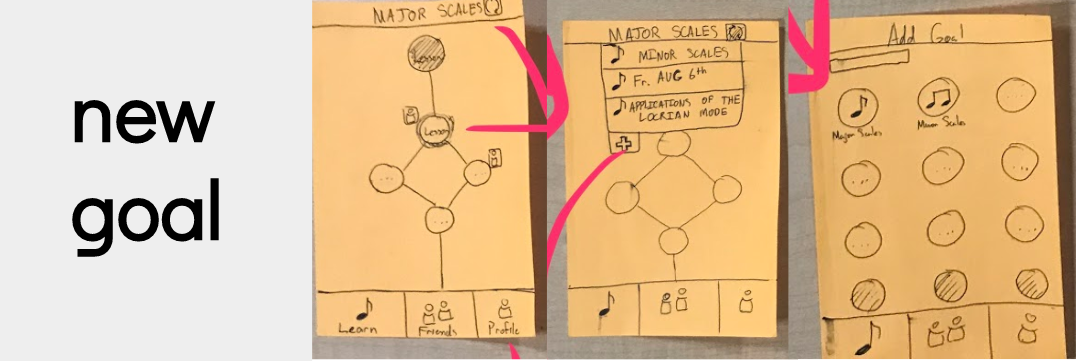 new
goal
MAJOR SCALES
Lesson
Lesson
Learn
Friends
Profile
MAJOR SCALES
MINOR SCALES
Fr. AUG 6th
APPLICATIONS OF THE
LOCRIAN MODE
Add Goal
Major Scales
Minor Scales